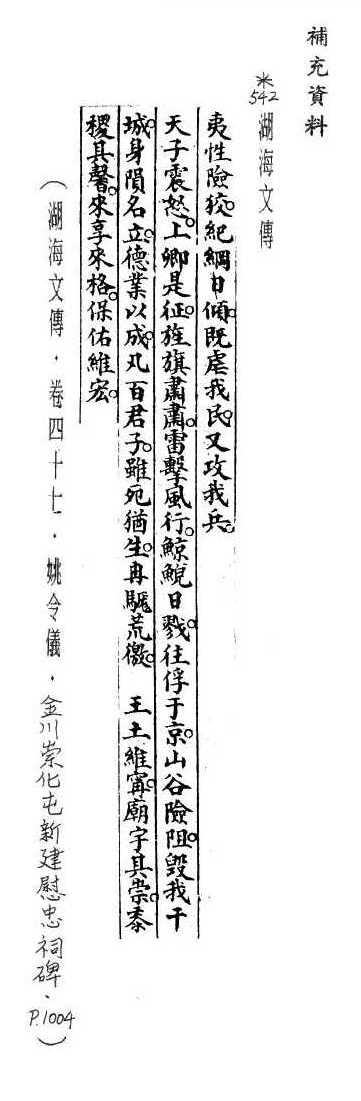 補充資料
※542 湖海文傳
夷性險狡。紀綱日傾。既虐我民。又攻我兵。
天子震怒。上卿是征。旌旗肅肅。雷擊風行。鯨鯢日戮。往俘于京。山谷險阻。毀我干
城。身隕名立。德業以成。凡百君子。雖死猶生。冉駹荒徼。 王土維寧。廟宇具崇。黍
稷具馨。來享來格。保佑維宏。
(湖海文傳.卷四十七.姚令儀.金川崇化屯新建慰忠祠碑.P.1004)